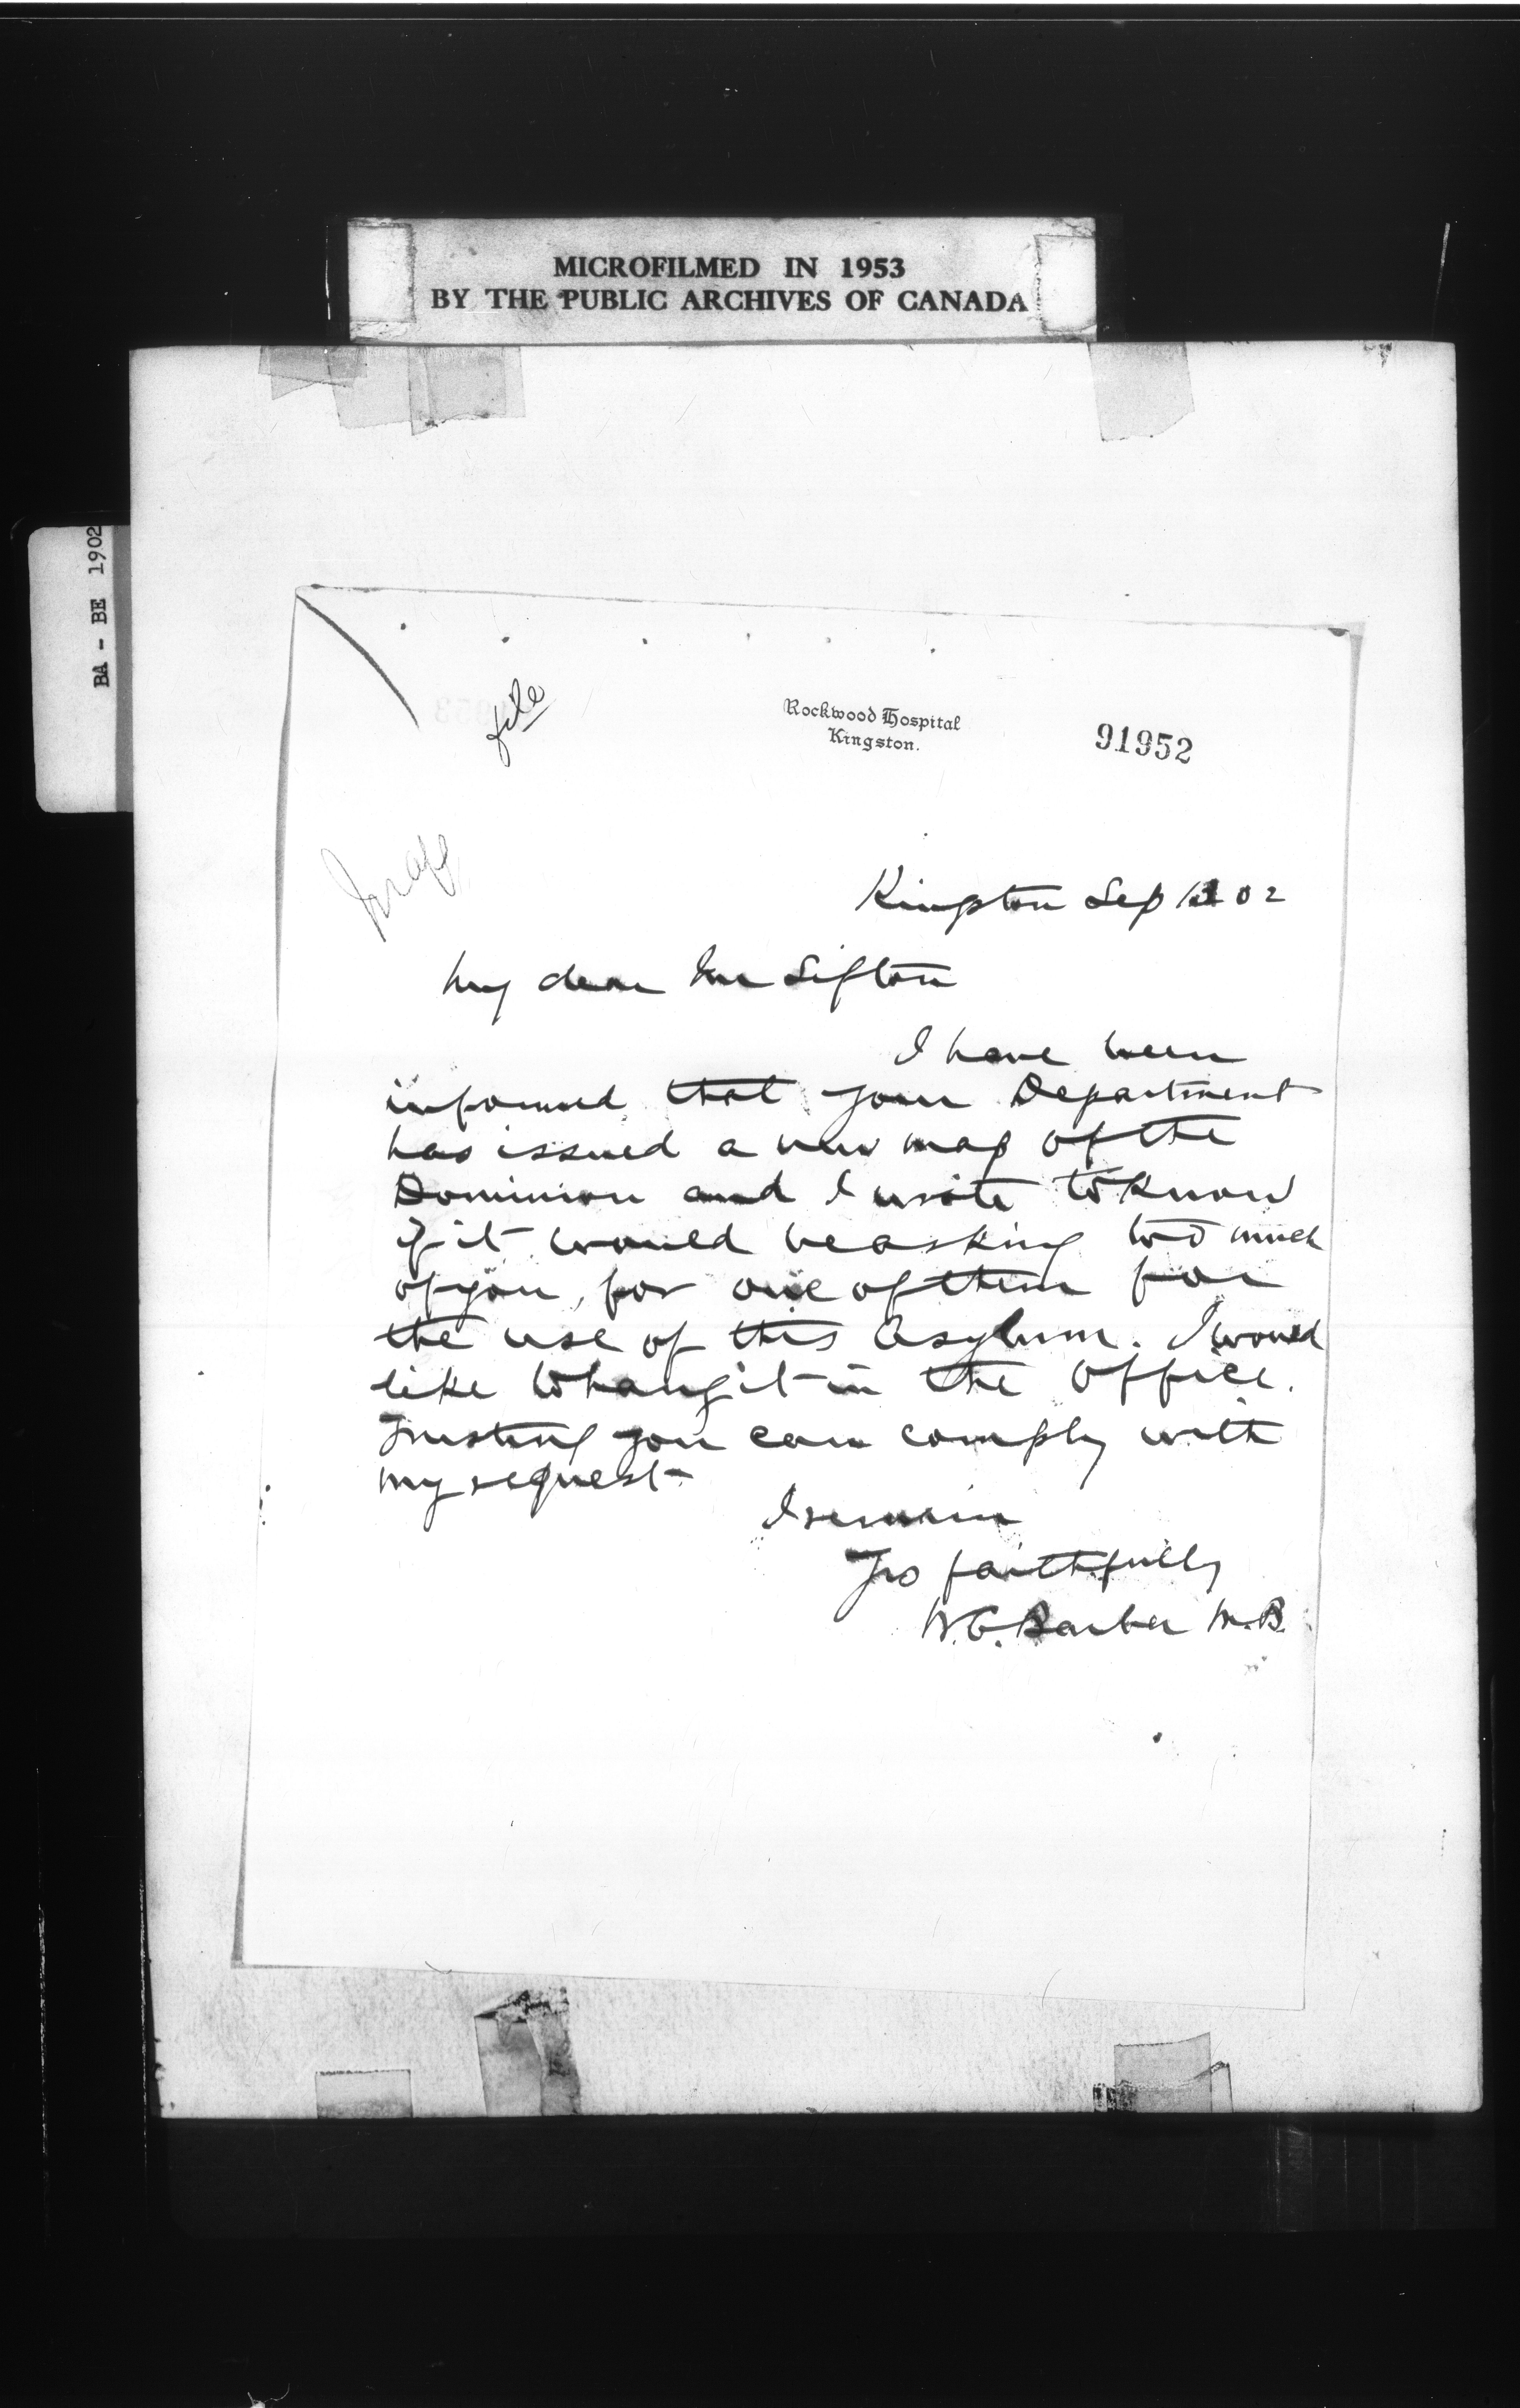 MICROFILMED IN 1953
BY THE PUBLIC ARCHIVES OF CANADA
BA - BE 1902
file
Rockwood Hospital
Kingston.
91952
Kingston Sep 02
My dear Mr Sifton
I have been
informed that your Department
has issued a new map of the
Dominion and I write to know
if it would be asking too much
of you, for one of them for
the use of this Asylum. I would
like to hang it in the office.
Trusting you can comply with
my request-
I remain
Yrs faithfully
W.C. Barber M.B.